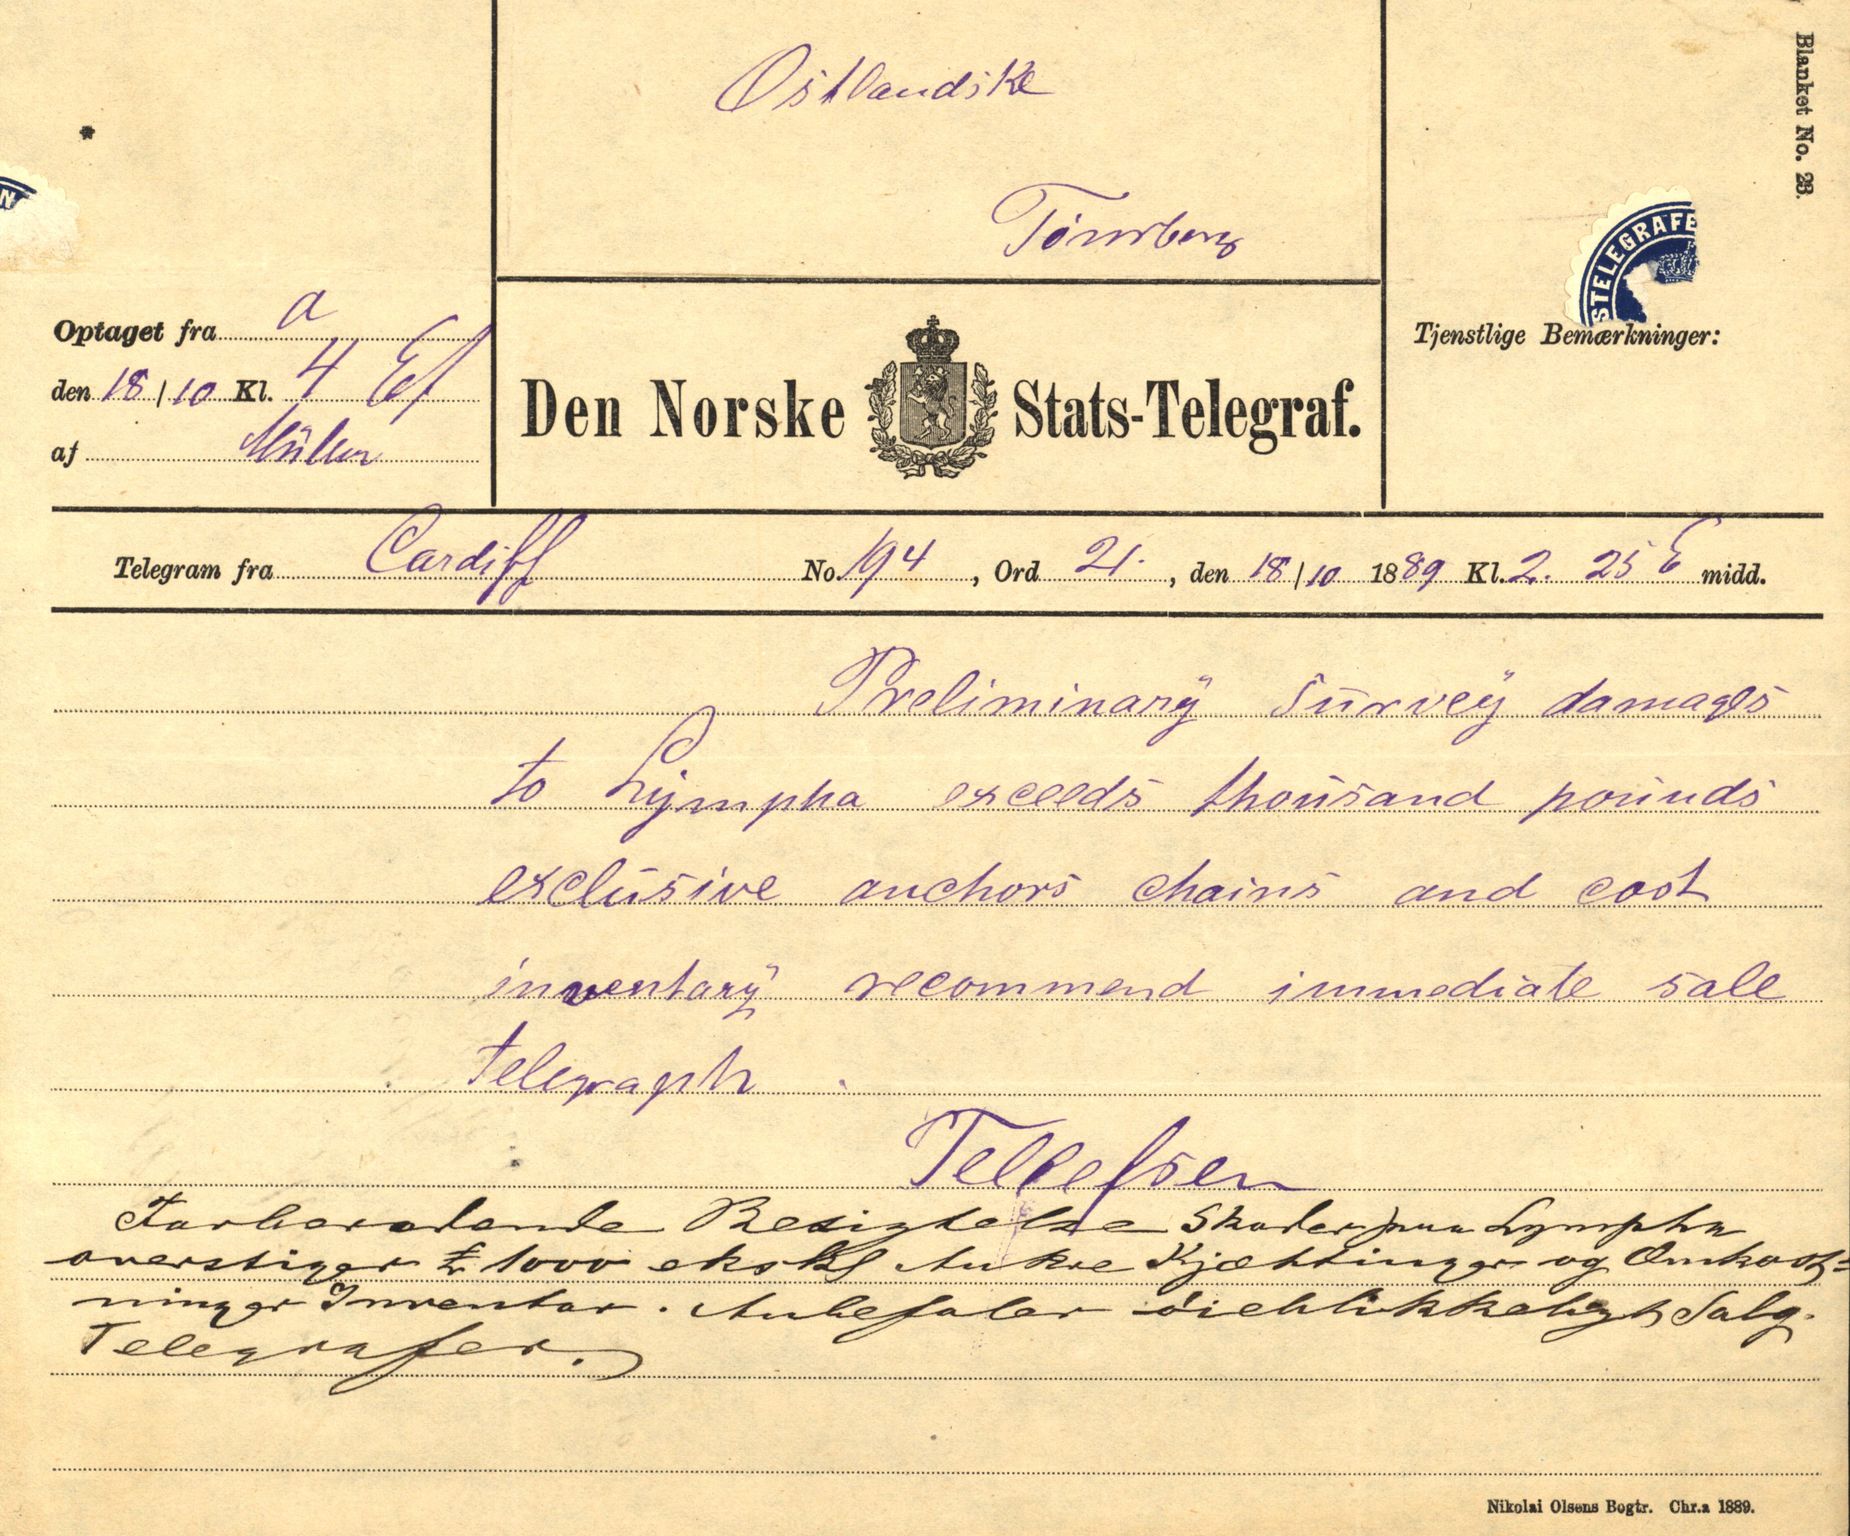 Blanket No. 23.
Østlandske
Tønsberg
N
STELEGRAFE
Optaget fra a
den 18/10 Kl. 4 Ef
af Müller
Den Norske Stats-Telegraf.
Tjenstlige Bemærkninger:
Telegram fra Cardiff No. 194, Ord 21., den 18/10 1889 Kl. 2. 25 E midd.
Preliminary survey damages
to Lympha exceeds thousand pounds
exclusive anchors chains and cost
inventary recommend immediate sale
telegraph.
Tellefsen
Forberedende Besigtelse Skader paa Lympha
overstiger £ 1000 ekskl Ankre Kjættinger og Omkost-
ninger Inventar. Anbefaler øieblikkeligt Salg.
Telegrafer.
Nikolai Olsens Bogtr. Chr.a 1889.